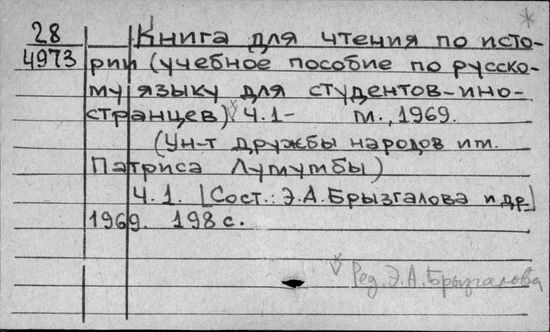 28 Книга для чтения по исто-
4973 рии (учебное пособие по русско-
му языку для студентов-ино-
странцев) Ч.1- М., 1969.
(Ун-т дружбы народов им.
Патриса Лумумбы)
Ч.1. [Сост.: Э.А.Брызгалова и др.]
1969. 198 с.
Ред. Э.А.Брызгалова